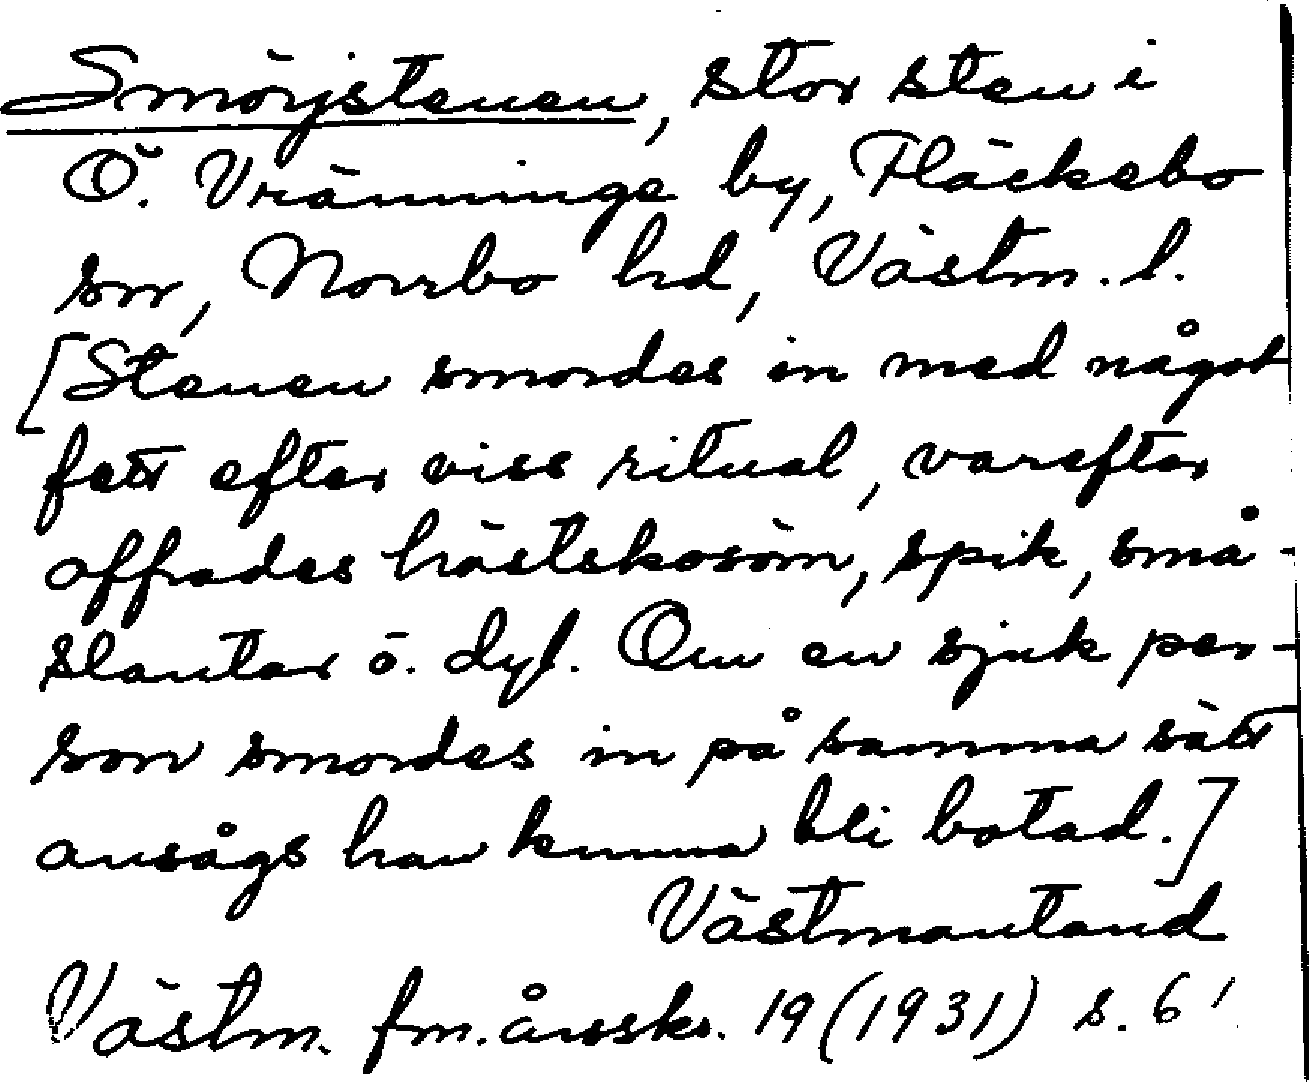 Smörjstenen, stor sten i
Ö. Vränninge by, Fläckebo
sn, Norrbo hd, Västm. l.
[Stenen smordes in med något
fett efter viss ritual, varefter
offrades hästskosöm, spik, små-
slantar o. dyl. Om en sjuk per-
son smordes in på samma sätt
ansågs han kunna bli botad.]
Västmanland
Västm. fm. årsskr. 19 (1931) s. 61